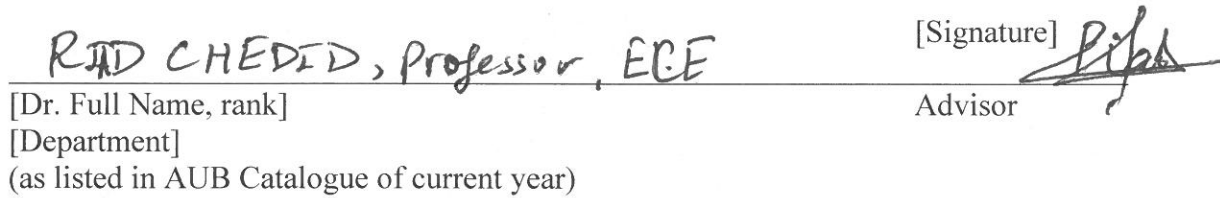 [Signature]
RIAD CHEDID, Professor, ECE
[Dr. Full Name, rank] Advisor
[Department]
(as listed in AUB Catalogue of current year)